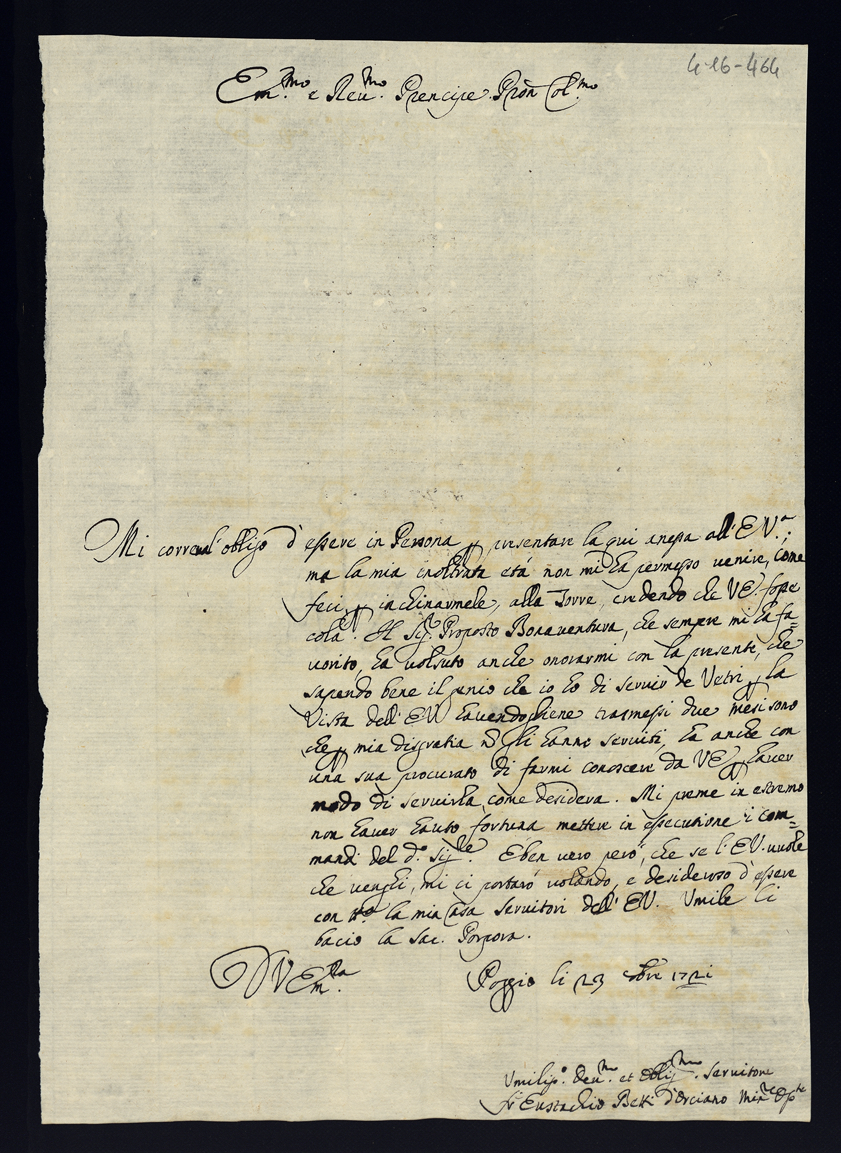 4-26-464
Em.mo e Rev.mo Prencipe Pron Col.mo
Mi correva l'obligo d'essere in Persona p presentare la qui anessa all'E V.a;
ma la mia inoltrata età non mi ha permesso venire, come
feci p inchinarmele, alla Torre, credendo che VE. fosse
colà. Il Sig.r Proposto Bonaventura, che sempre mi ha fa=
vorito, ha volsuto anche onorarmi con la presente, che
sapendo bene il genio che io ho di servir de Vetri p la
Vista dell'EV havendogliene trasmessi due mesi sono
che p mia disgratia n gli hanno serviti, ha anche con
una sua procurato di farmi conoscere da VE p haver
modo di servirla come desidera. Mi preme in estremo
non haver hauto fortuna mettere in essecutione i com=
mandi del d.o Sig.re. Eben vero però, che se l'EV. vuole
che venghi, mi ci portarò volando, e desideroso d'essere
con la mia Casa servitori dell'EV. Umile li
bacio la Sac. Porpora.
D V Em.za
Poggio li 23 bre 1721
Umiliss.o Dev.mo et Oblig.mo Servitore
Fr Eustachio Betti d'Orciano Min.re